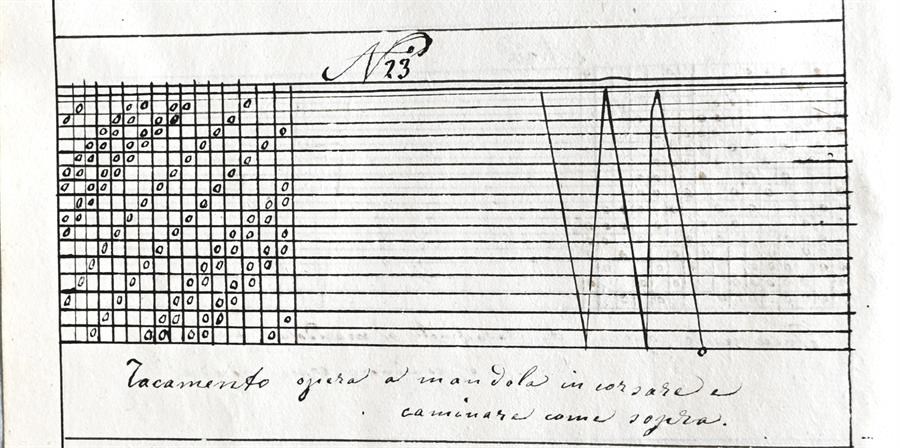 N° 23
Tacamento opera a mandola in corsare e
caminare come sopra.